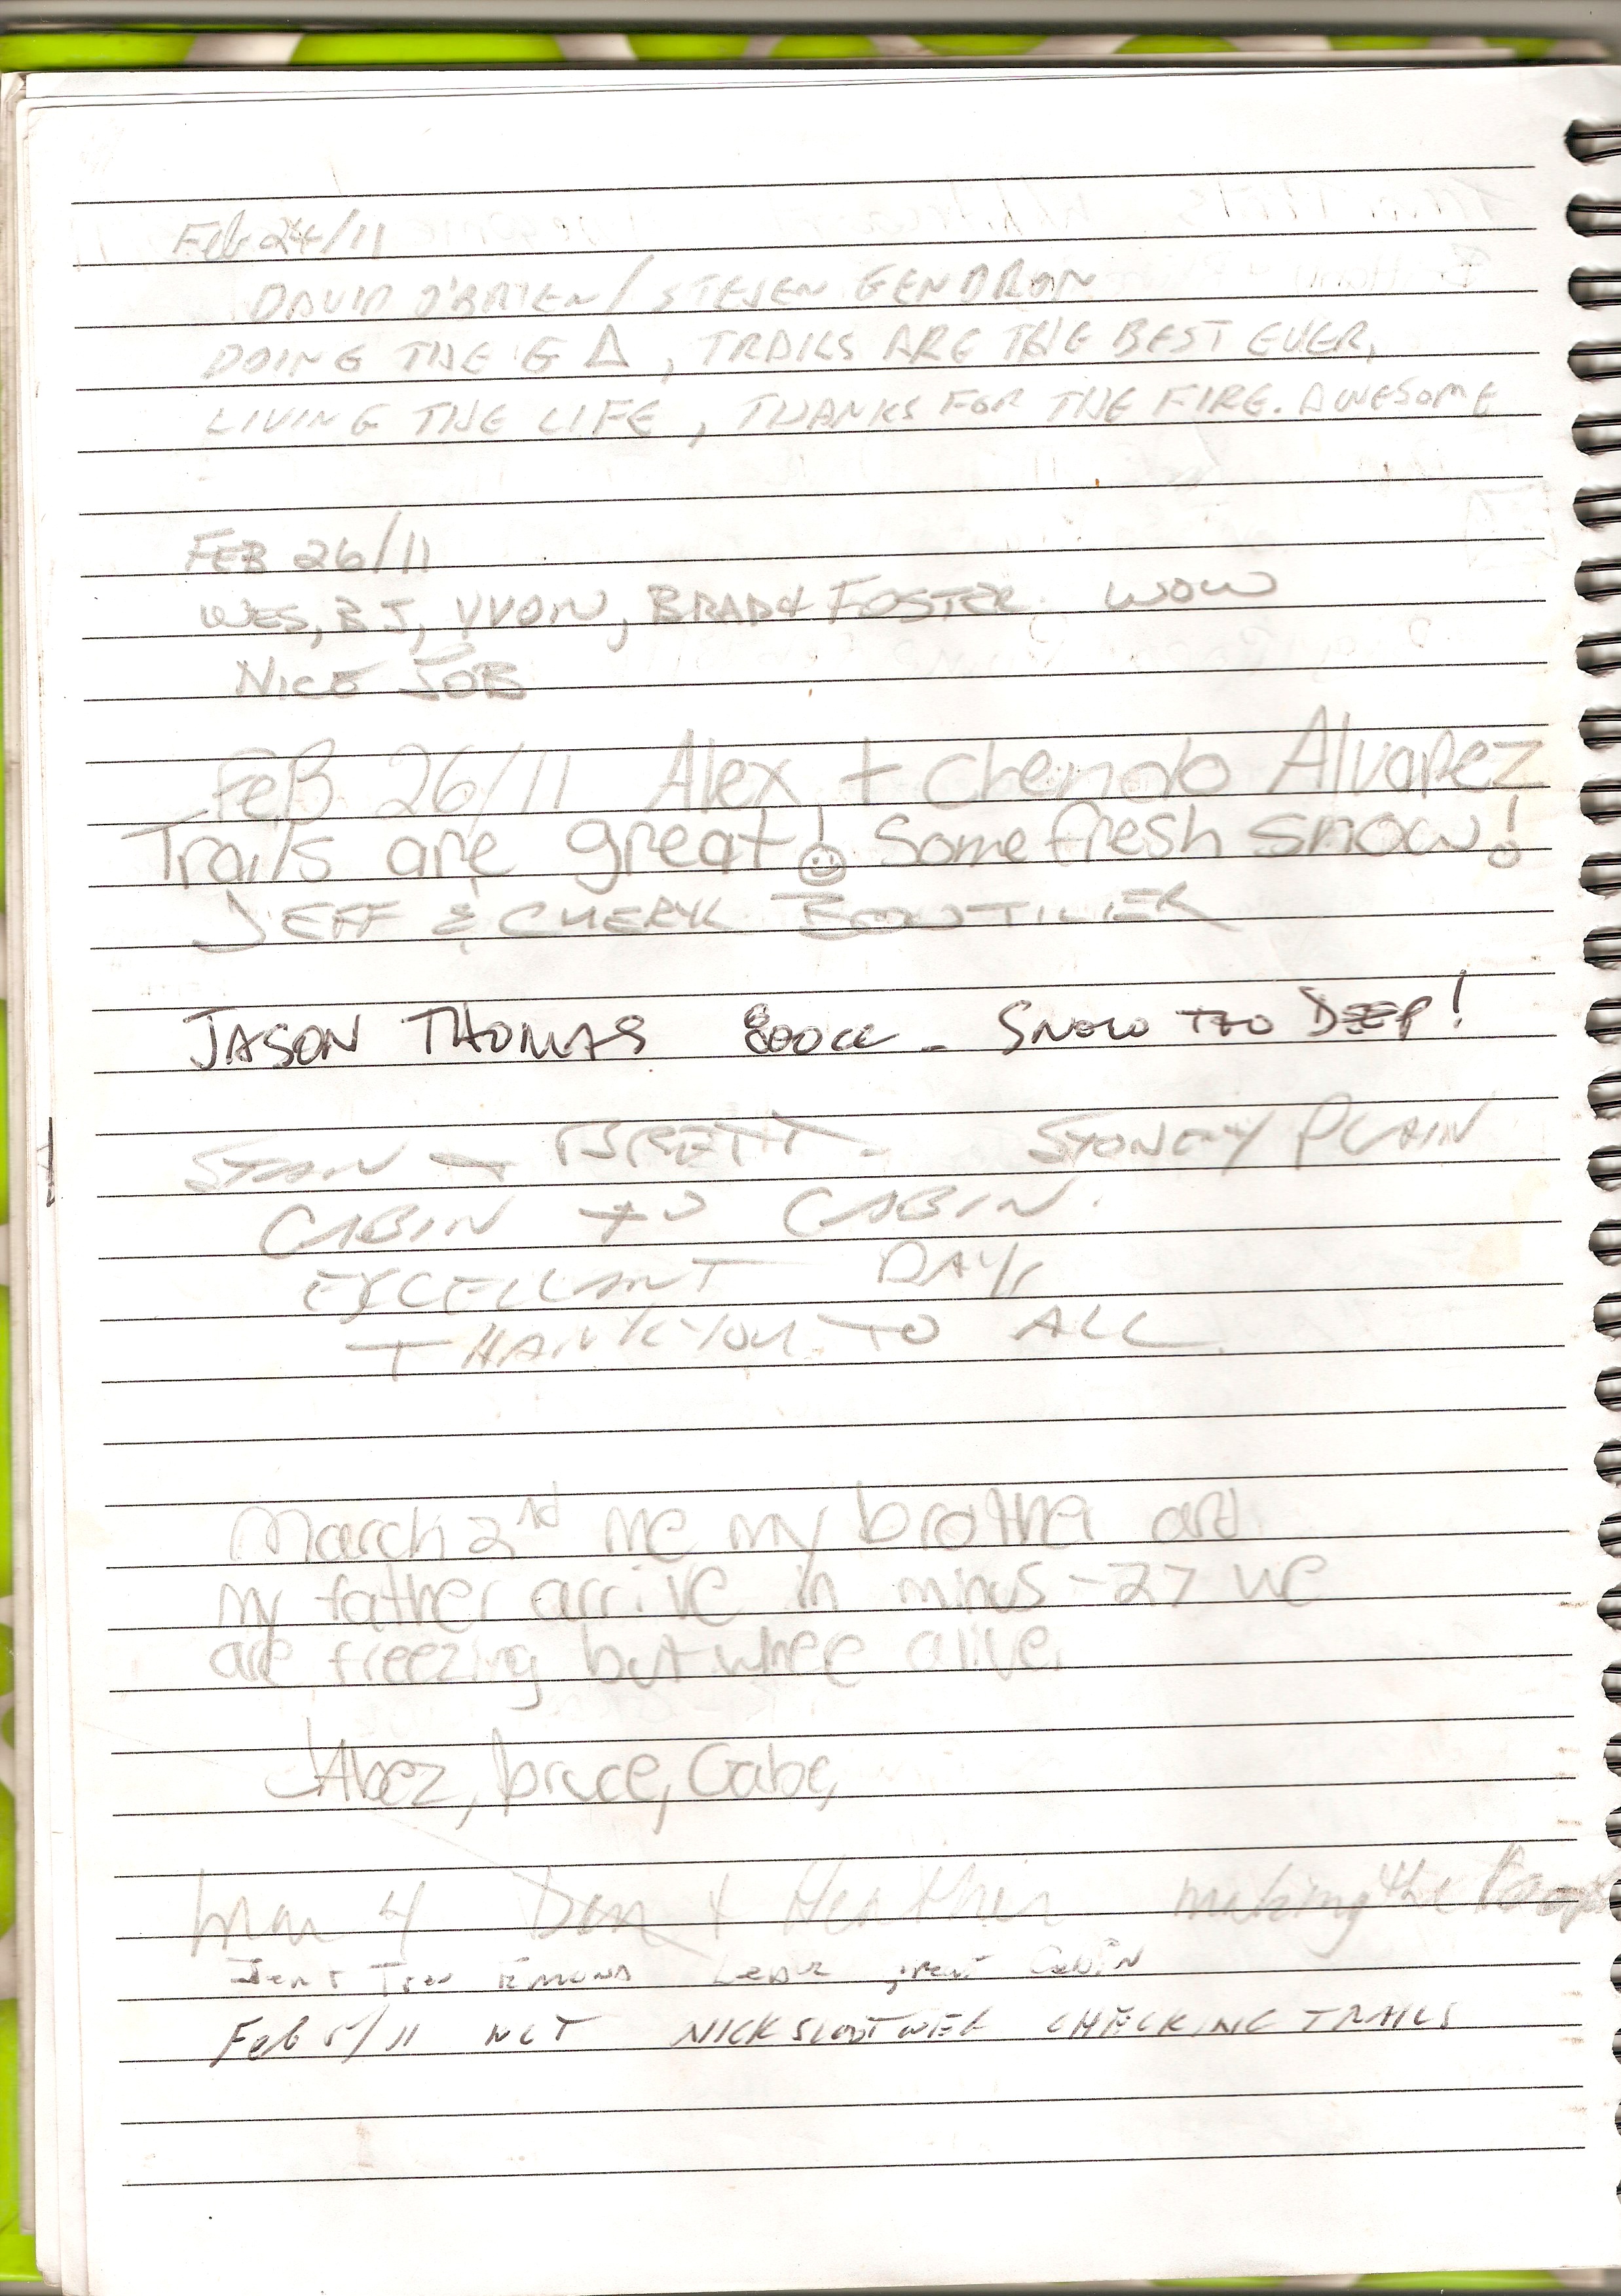 Feb 24/11
DAVID O'BRIEN / STEVEN GENDRON
DOING THE G Δ, TRAILS ARE THE BEST EVER,
LIVING THE LIFE, THANKS FOR THE FIRE. AWESOME
FEB 26/11
WES, BJ, YVON, BRAD & FOSTER. WOW
NICE JOB
FeB 26/11 Alex + Chendo Alvarez
Trails are great! ☺ Some fresh snow!
JEFF & CHERYL BOUTILIER
JASON THOMAS 800cc - SNOW TOO DEEP!
STAN + BRETT - STONEY PLAIN
CABIN to CABIN.
EXCELLANT DAY,
THANKYOU TO ALL
March 2nd me my brother and
my father arrive in minus -27 we
are freezing but whee alive.
JAbez, bruce, Gabe,
Mar 4 Don & Heather making the
great Cabin
Feb 5/11 NICK CHECKING TRAILS